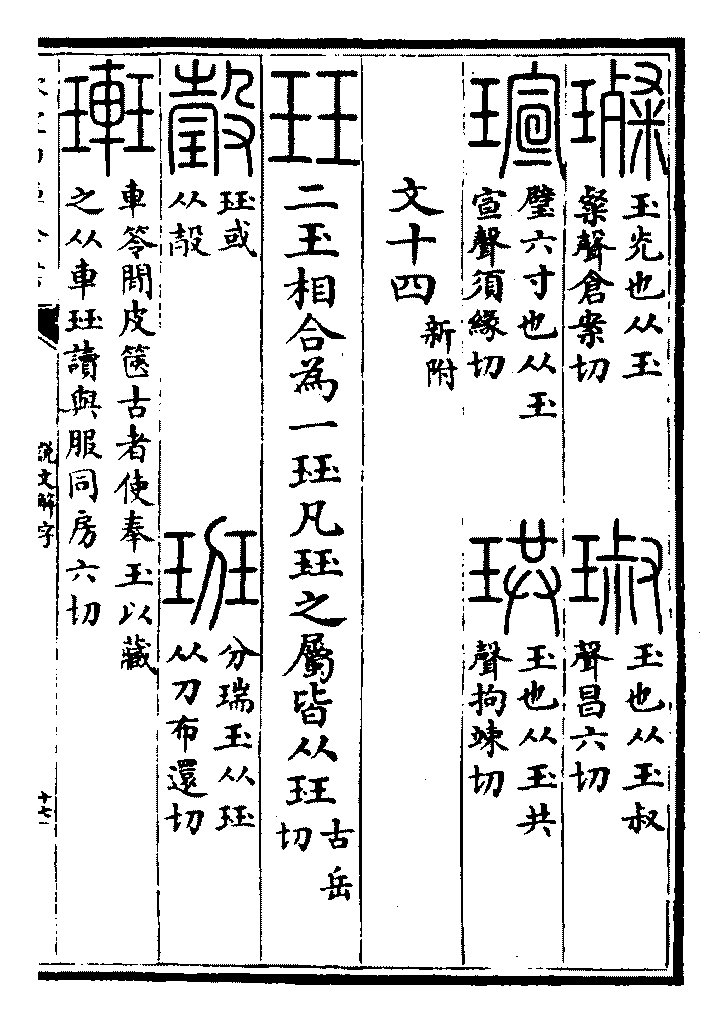 璨
玉光也从玉
粲聲倉案切
琡
玉也从玉叔
聲昌六切
瑄
璧六寸也从玉
宣聲須緣切
珙
玉也从玉共
聲拘竦切
文十四
新附
玨
二玉相合為一珏凡珏之屬皆从玨
古岳
切
瑴
珏或
从㱿
班
分瑞玉从珏
从刀布還切
𤦲
車笭閒皮篋古者使奉玉以藏
之从車珏讀與服同房六切
說文解字
十七